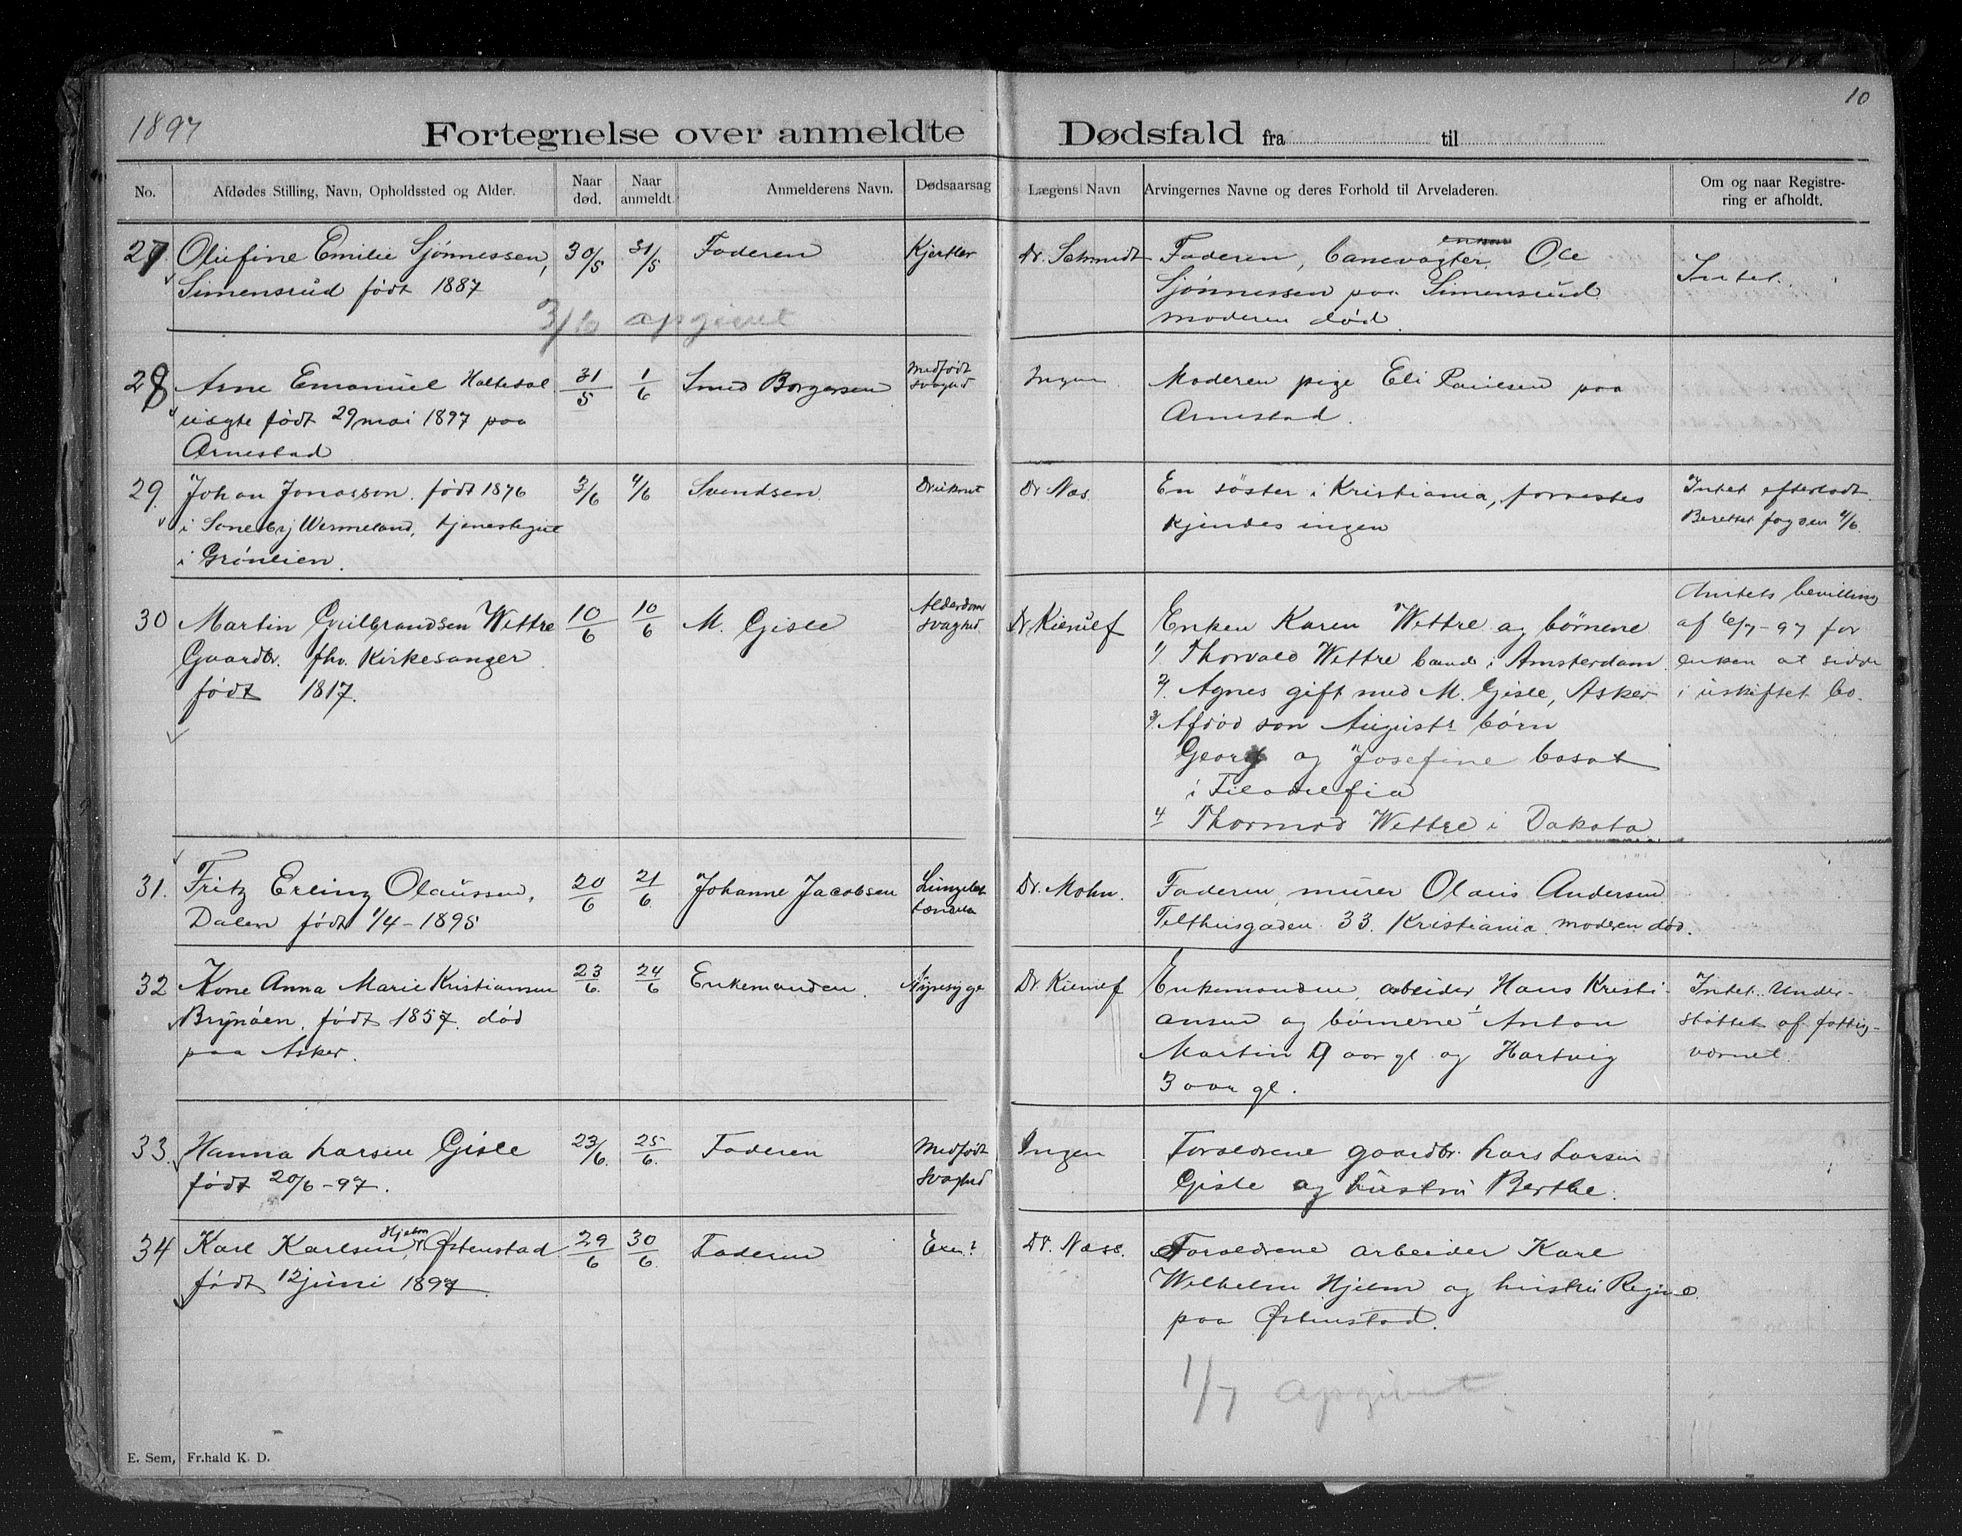 1897
10
Fortegnelse over anmeldte Dødsfald fra til
No.
Afdødes Stilling, Navn, Opholdssted og Alder.
Naar død.
Naar anmeldt.
Anmelderens Navn.
Dødsaarsag
Lægens Navn
Arvingernes Navne og deres Forhold til Arveladeren.
Om og naar Registre-
ring er afholdt.
27 Olufine Emilie Sjønnessen, 30/5 31/5 Faderen Kjertler Dr. Schmidt Faderen, banevogter Ole
Simensrud født 1887 Sjønnessen paa Simensrud Intet.
moderen død.
3/6 apgivet
28 Arne Emanuel Haltedal 31/5 1/6 Smed Borgersen Medfødt svaghed Ingen Moderen pige Eli Paulsen paa
uægte født 29 mai 1897 paa Arnestad.
Arnestad
29. Johan Jonasson, født 1876 3/6 4/6 Svendsen Druknet Dr Næs. En søster i Kristiania, forøvrigt Intet efterladt
i Wermeland, tjenestegut kjendes ingen Berettet fogden 4/6
i Grønlien.
30 Martin Gulbrandsen Wettre 10/6 10/6 M. Gisle Alderdoms svaghed. Dr Kierulf Enken Karen Wettre og børnene Amtets bevilling
Gaardbr. fhv. Kirkesanger 1/ Thorvald Wettre bænde i Amsterdam af 6/7-97 for
født 1817. 2/. Agnes gift med M. Gisle, Asker enken at sidde
3/ Afdød søn Augusts børn i uskiftet bo.
Georg og Josefine bosat
i Filadelfia
4 Thormod Wettre i Dakota
31. Fritz Erling Olaussen, 20/6 21/6 Johanne Jacobsen Lungebetændelse Dr. Mohn. Faderen, murer Olaus Andersen
Dalen født 1/4-1895 Telthusgaden 33. Kristiania. moderen død.
32 Kone Anna Marie Kristiansen 23/6 24/6 Enkemanden. Nyresyge Dr. Kierulf Enkemanden, arbeider Hans Kristi- Intet. Under-
Brynøen, født 1857. død ansen og børnene Anton støttet af fattig-
paa Asker. Martin 9 aar gl. og Hartvig væsnet.
3 aar gl.
33. Hanna Larsen Gisle 23/6. 25/6. Faderen Medfødt svaghed Ingen Forældrene gaardbr. Lars Larsen
født 20/6-97. Gisle og hustru Berthe.
34 Karl Karlsen Hjelm, Østenstad 29/6 30/6. Faderen Dr. Næss. Forældrene arbeider Karl
født 12 juni 1897. Wilhelm Hjelm og hustru Regine
paa Østenstad.
1/7 apgivet.
E. Sem, Fr.hald K. D.